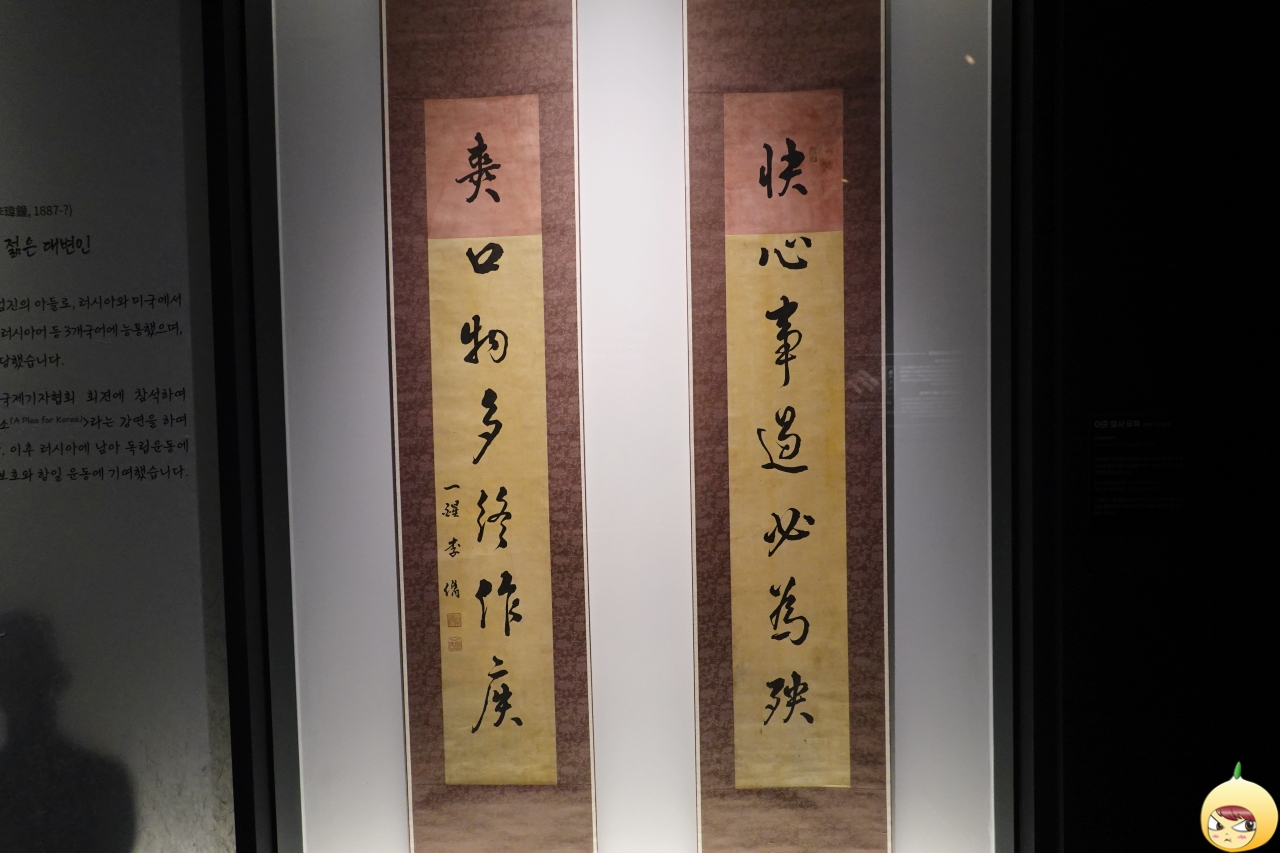 瑋鍾, 1887-?)
젊은 대변인
범진의 아들로, 러시아와 미국에서
러시아어 등 3개국어에 능통했으며,
담했습니다.
국제기자협회 회견에 참석하여
소「A Plea for Korea」>라는 강연을 하며
. 이후 러시아에 남아 독립운동에
보호와 항일 운동에 기여했습니다.
快心事過必為殃
爽口物多終作疾
一醒 李儁